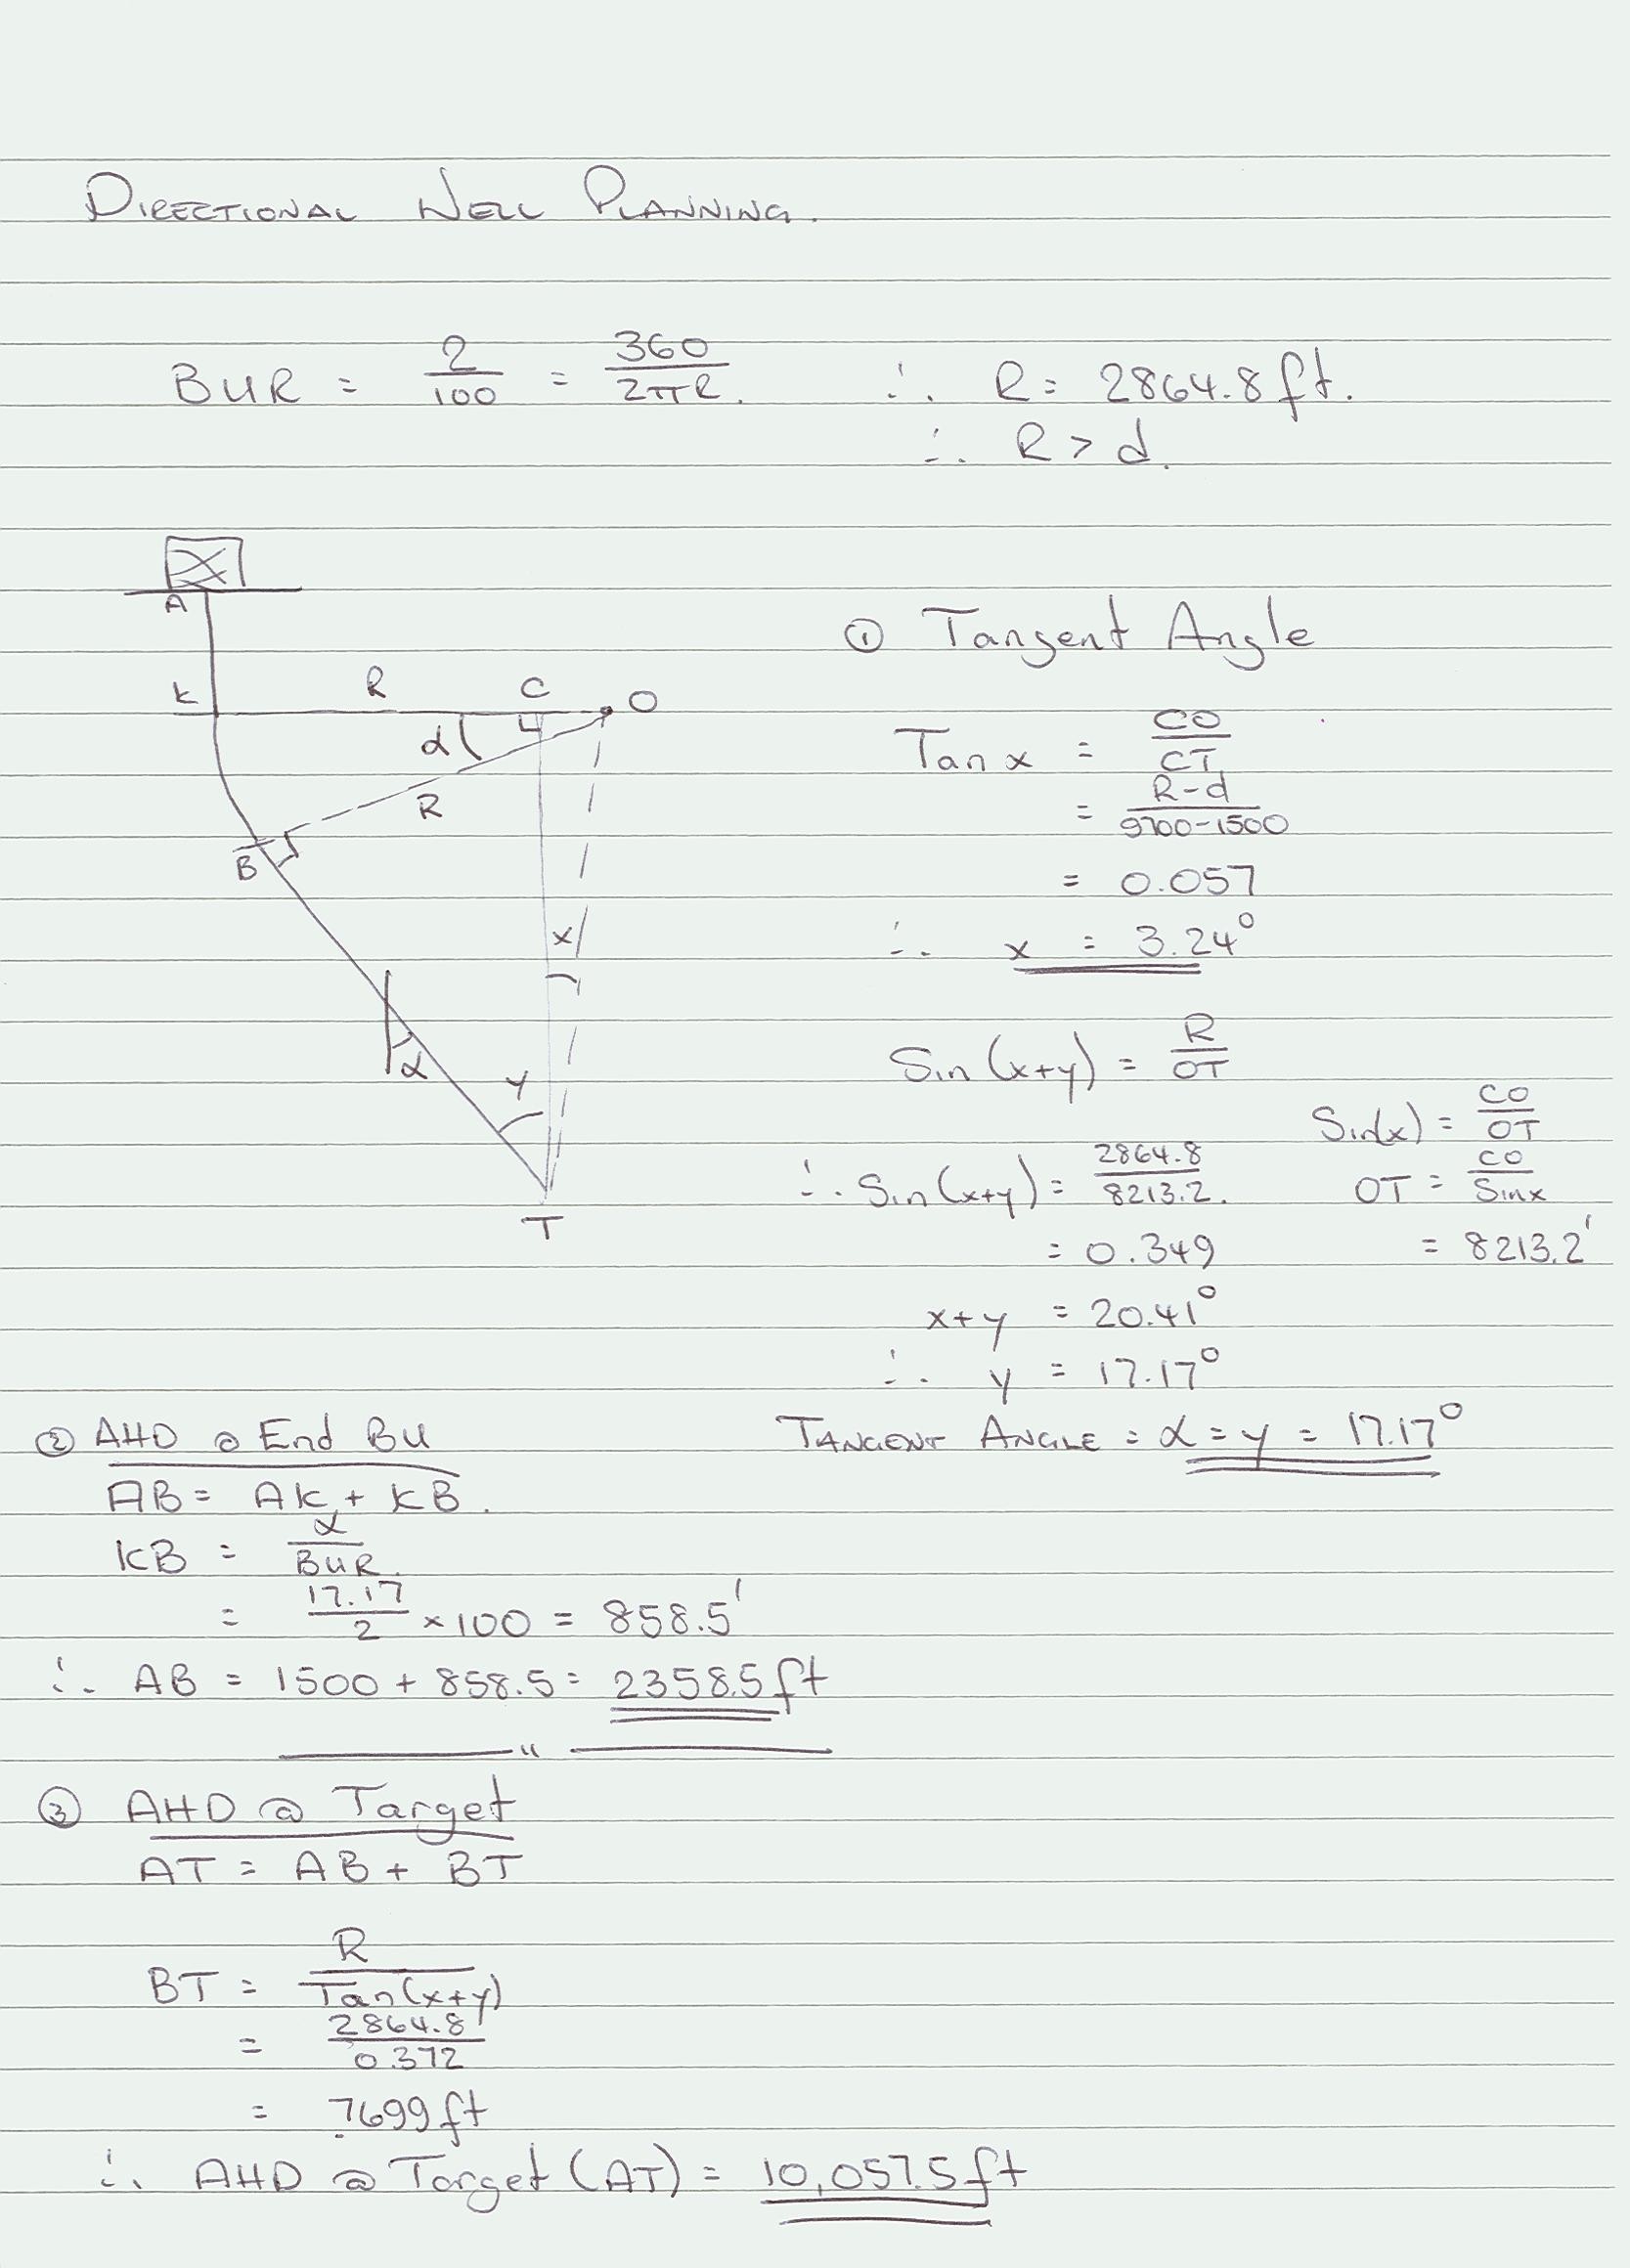 DIRECTIONAL WELL PLANNING.
BUR = 2/100 = 360/2πR. ∴ R = 2864.8 ft.
∴ R > d.
A
K R C O
α
R
B
x
α
y
T
① Tangent Angle
Tan x = CO/CT
= R-d/9700-1500
= 0.057
∴ x = 3.24°
Sin (x+y) = R/OT
Sin(x) = CO/OT
∴ Sin (x+y) = 2864.8/8213.2.
OT = CO/Sinx
= 0.349
= 8213.2'
x+y = 20.41°
∴ y = 17.17°
TANGENT ANGLE = α = y = 17.17°
② AHD @ End BU
AB = AK + KB.
KB = α/BUR.
= 17.17/2 × 100 = 858.5'
∴ AB = 1500 + 858.5 = 2358.5 ft
"
③ AHD @ Target
AT = AB + BT
BT = R/Tan(x+y)
= 2864.8/0.372
= 7699 ft
∴ AHD @ Target (AT) = 10,057.5 ft